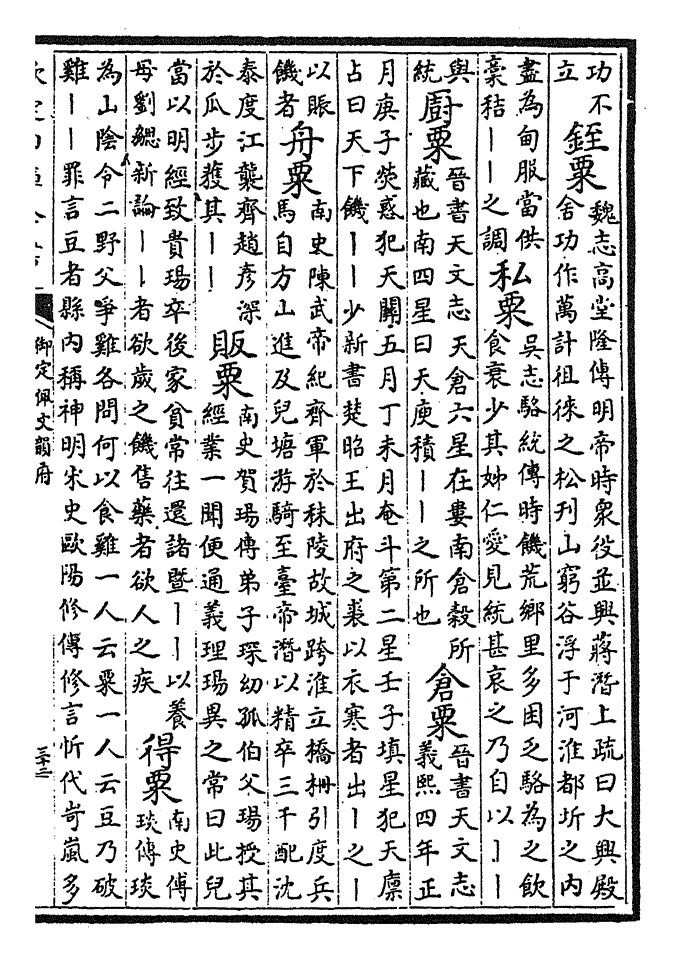 功不
立
銍粟
魏志高堂隆傳明帝時衆役並興蔣濟上疏曰大興殿
舍功作萬計徂徠之松刋山窮谷浮于河淮都圻之内
盡為甸服當供
稾秸｜｜之調
私粟
吳志駱統傳時饑荒鄉里多困乏駱為之飲
食衰少其姊仁愛見統甚哀之乃自以｜｜
與
統
廚粟
晉書天文志天倉六星在婁南倉穀所
藏也南四星曰天庾積｜｜之所也
倉粟
晉書天文志
義熙四年正
月庚子熒惑犯天關五月丁未月奄斗第二星壬子填星犯天廪
占曰天下饑｜｜少新書楚昭王出府之裘以衣寒者出｜之｜
以賑
饑者
舟粟
南史陳武帝紀齊軍於秣陵故城跨淮立橋柵引度兵
馬自方山進及兒塘游騎至臺帝潛以精卒三千配沈
泰度江襲齊趙彥深
於瓜步獲其｜｜
販粟
南史賀瑒傳弟子琛幼孤伯父瑒授其
經業一聞便通義理瑒異之常曰此兒
當以明經致貴瑒卒後家貧常往還諸暨｜｜以養
母劉勰新論｜｜者欲歲之饑售藥者欲人之疾
得粟
南史傅
琰傳琰
為山陰令二野父爭雞各問何以食雞一人云粟一人云豆乃破
雞｜｜罪言豆者縣内稱神明宋史歐陽修傳修言忻代岢嵐多
御定佩文韻府
三十三